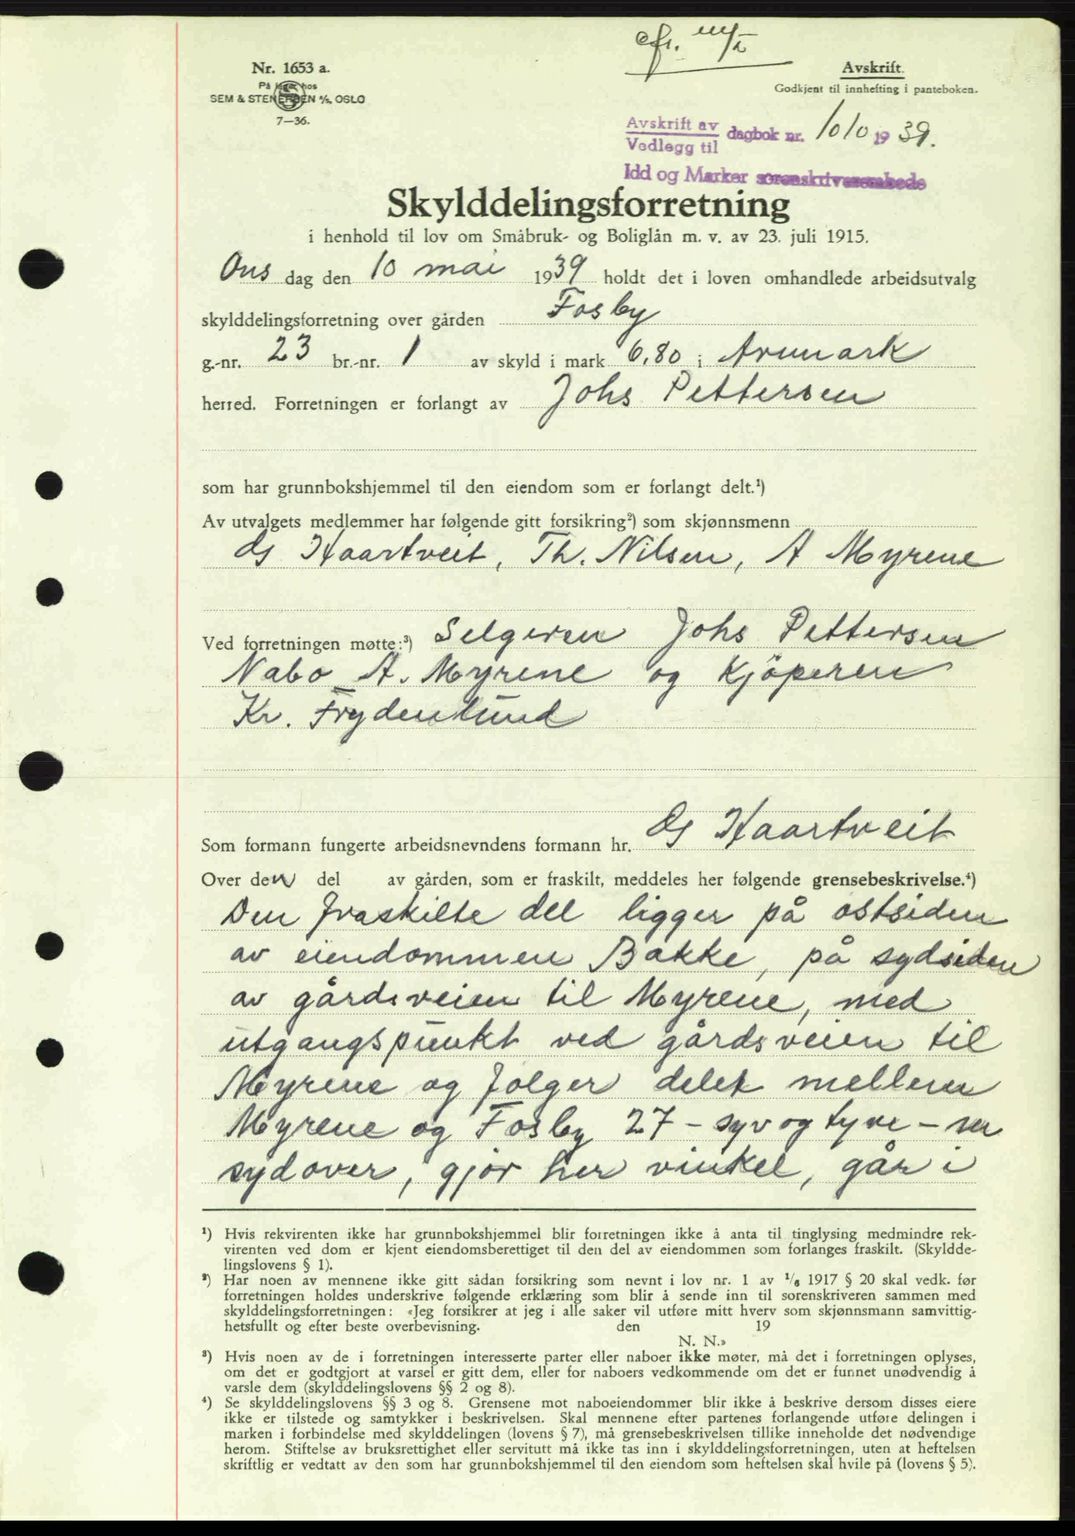 Nr. 1653 a.
På lager hos
SEM & STENERSEN A/S, OSLO
7—36.
cfr.
Avskrift.
Godkjent til innhefting i panteboken.
Avskrift av
Vedlegg til
dagbok nr. 1010 1939.
Idd og Marker sorenskriverembede
Skylddelingsforretning
i henhold til lov om Småbruk- og Boliglån m. v. av 23. juli 1915.
Ons dag den 10 mai 1939 holdt det i loven omhandlede arbeidsutvalg
skylddelingsforretning over gården Fosby
g.-nr. 23 br.-nr. 1 av skyld i mark 6,80 i Aremark
herred. Forretningen er forlangt av Johs Pettersen
som har grunnbokshjemmel til den eiendom som er forlangt delt.¹)
Av utvalgets medlemmer har følgende gitt forsikring²) som skjønnsmenn
Haartveit, Th. Nilsen, A Myrene
Ved forretningen møtte:³) Selgeren Johs Pettersen
Nabo A. Myrene og Kjöperen
Kr. Frydenlund
Som formann fungerte arbeidsnevndens formann hr. Haartveit
Over den del av gården, som er fraskilt, meddeles her følgende grensebeskrivelse.⁴)
Den fraskilte del ligger på østsiden
av eiendommen Bakke, på sydsiden
av gårdsveien til Myrene, med
utgangspunkt ved gårdsveien til
Myrene og følger delet mellem
Myrene og Fosby 27 - syv og tyve - mr
sydover, gjør her vinkel, går i
¹) Hvis rekvirenten ikke har grunnbokshjemmel blir forretningen ikke å anta til tinglysing medmindre rek-
virenten ved dom er kjent eiendomsberettiget til den del av eiendommen som forlanges fraskilt. (Skyldde-
lingslovens § 1).
²) Har noen av mennene ikke gitt sådan forsikring som nevnt i lov nr. 1 av 1/6 1917 § 20 skal vedk. før
forretningen holdes underskrive følgende erklæring som blir å sende inn til sorenskriveren sammen med
skylddelingsforretningen: «Jeg forsikrer at jeg i alle saker vil utføre mitt hverv som skjønnsmann samvittig-
hetsfullt og efter beste overbevisning. den 19
N. N.»
³) Hvis noen av de i forretningen interesserte parter eller naboer ikke møter, må det i forretningen oplyses,
om det er godtgjort at varsel er gitt dem, eller for naboers vedkommende om det er funnet unødvendig å
varsle dem (skylddelingslovens §§ 2 og 8).
⁴) Se skylddelingslovens §§ 3 og 8. Grensene mot naboeiendommer blir ikke å beskrive dersom disses eiere
ikke er tilstede og samtykker i beskrivelsen. Skal mennene efter partenes forlangende utføre delingen i
marken i forbindelse med skylddelingen (lovens § 7), må grensebeskrivelsen tillike inneholde det nødvendige
herom. Stiftelse av bruksrettighet eller servitutt må ikke tas inn i skylddelingsforretningen, uten at heftelsen
skriftlig er vedtatt av den som har grunnbokshjemmel til den eiendom som heftelsen skal hvile på (lovens § 5).